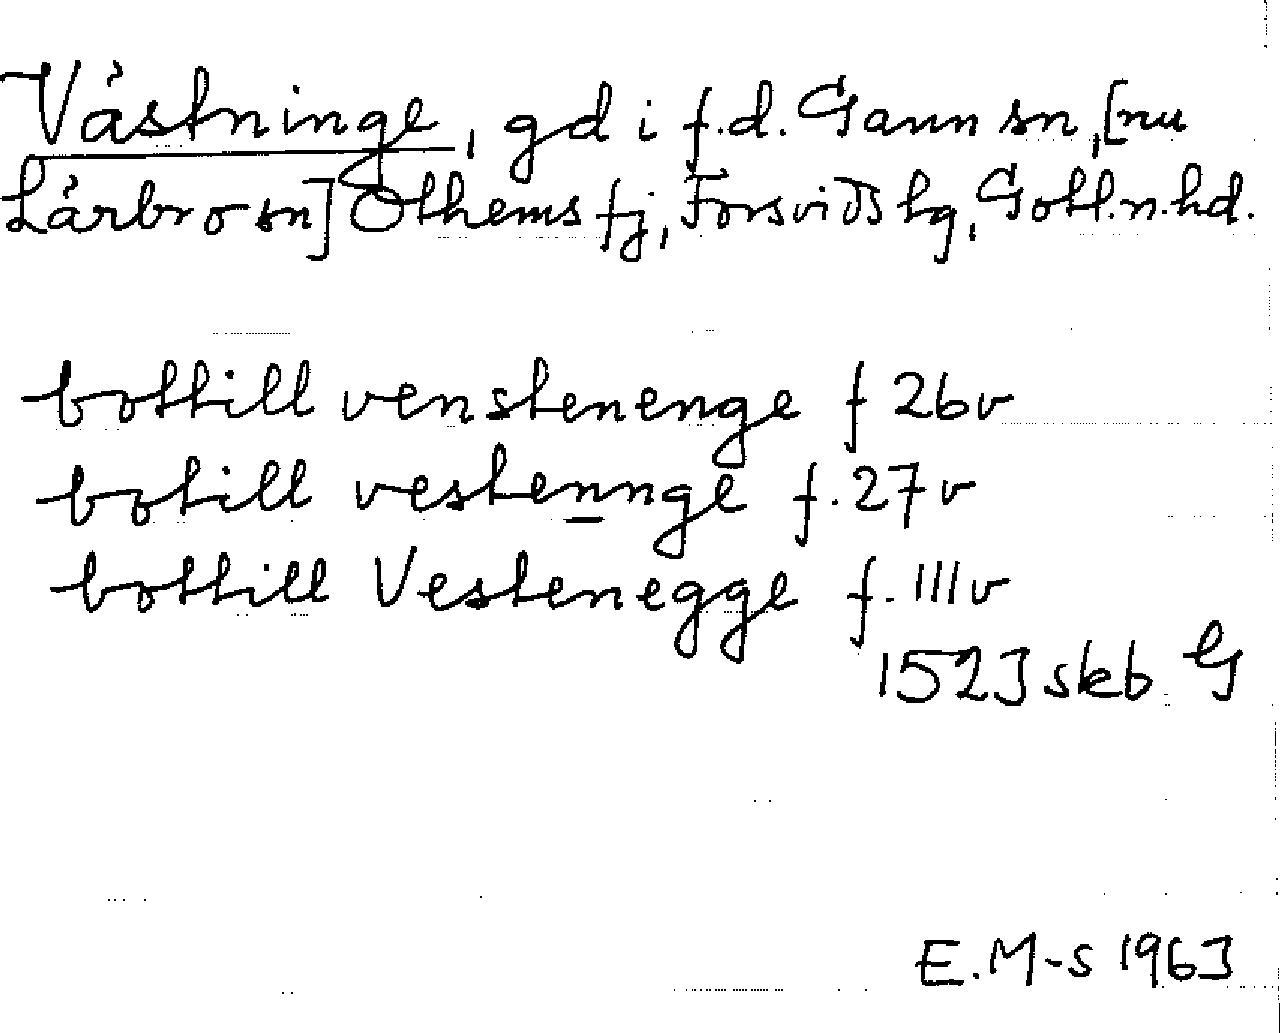 Västninge, gd i f.d. Gann sn, [nu
Lärbro sn] Othems tj, Forsviðs hg, Gotl. n. hd.
bothill venstenenge f 26v
botill vestennge f. 27v
bothill Vestenegge f. 111v
1523 skb G
E. M-s 1963